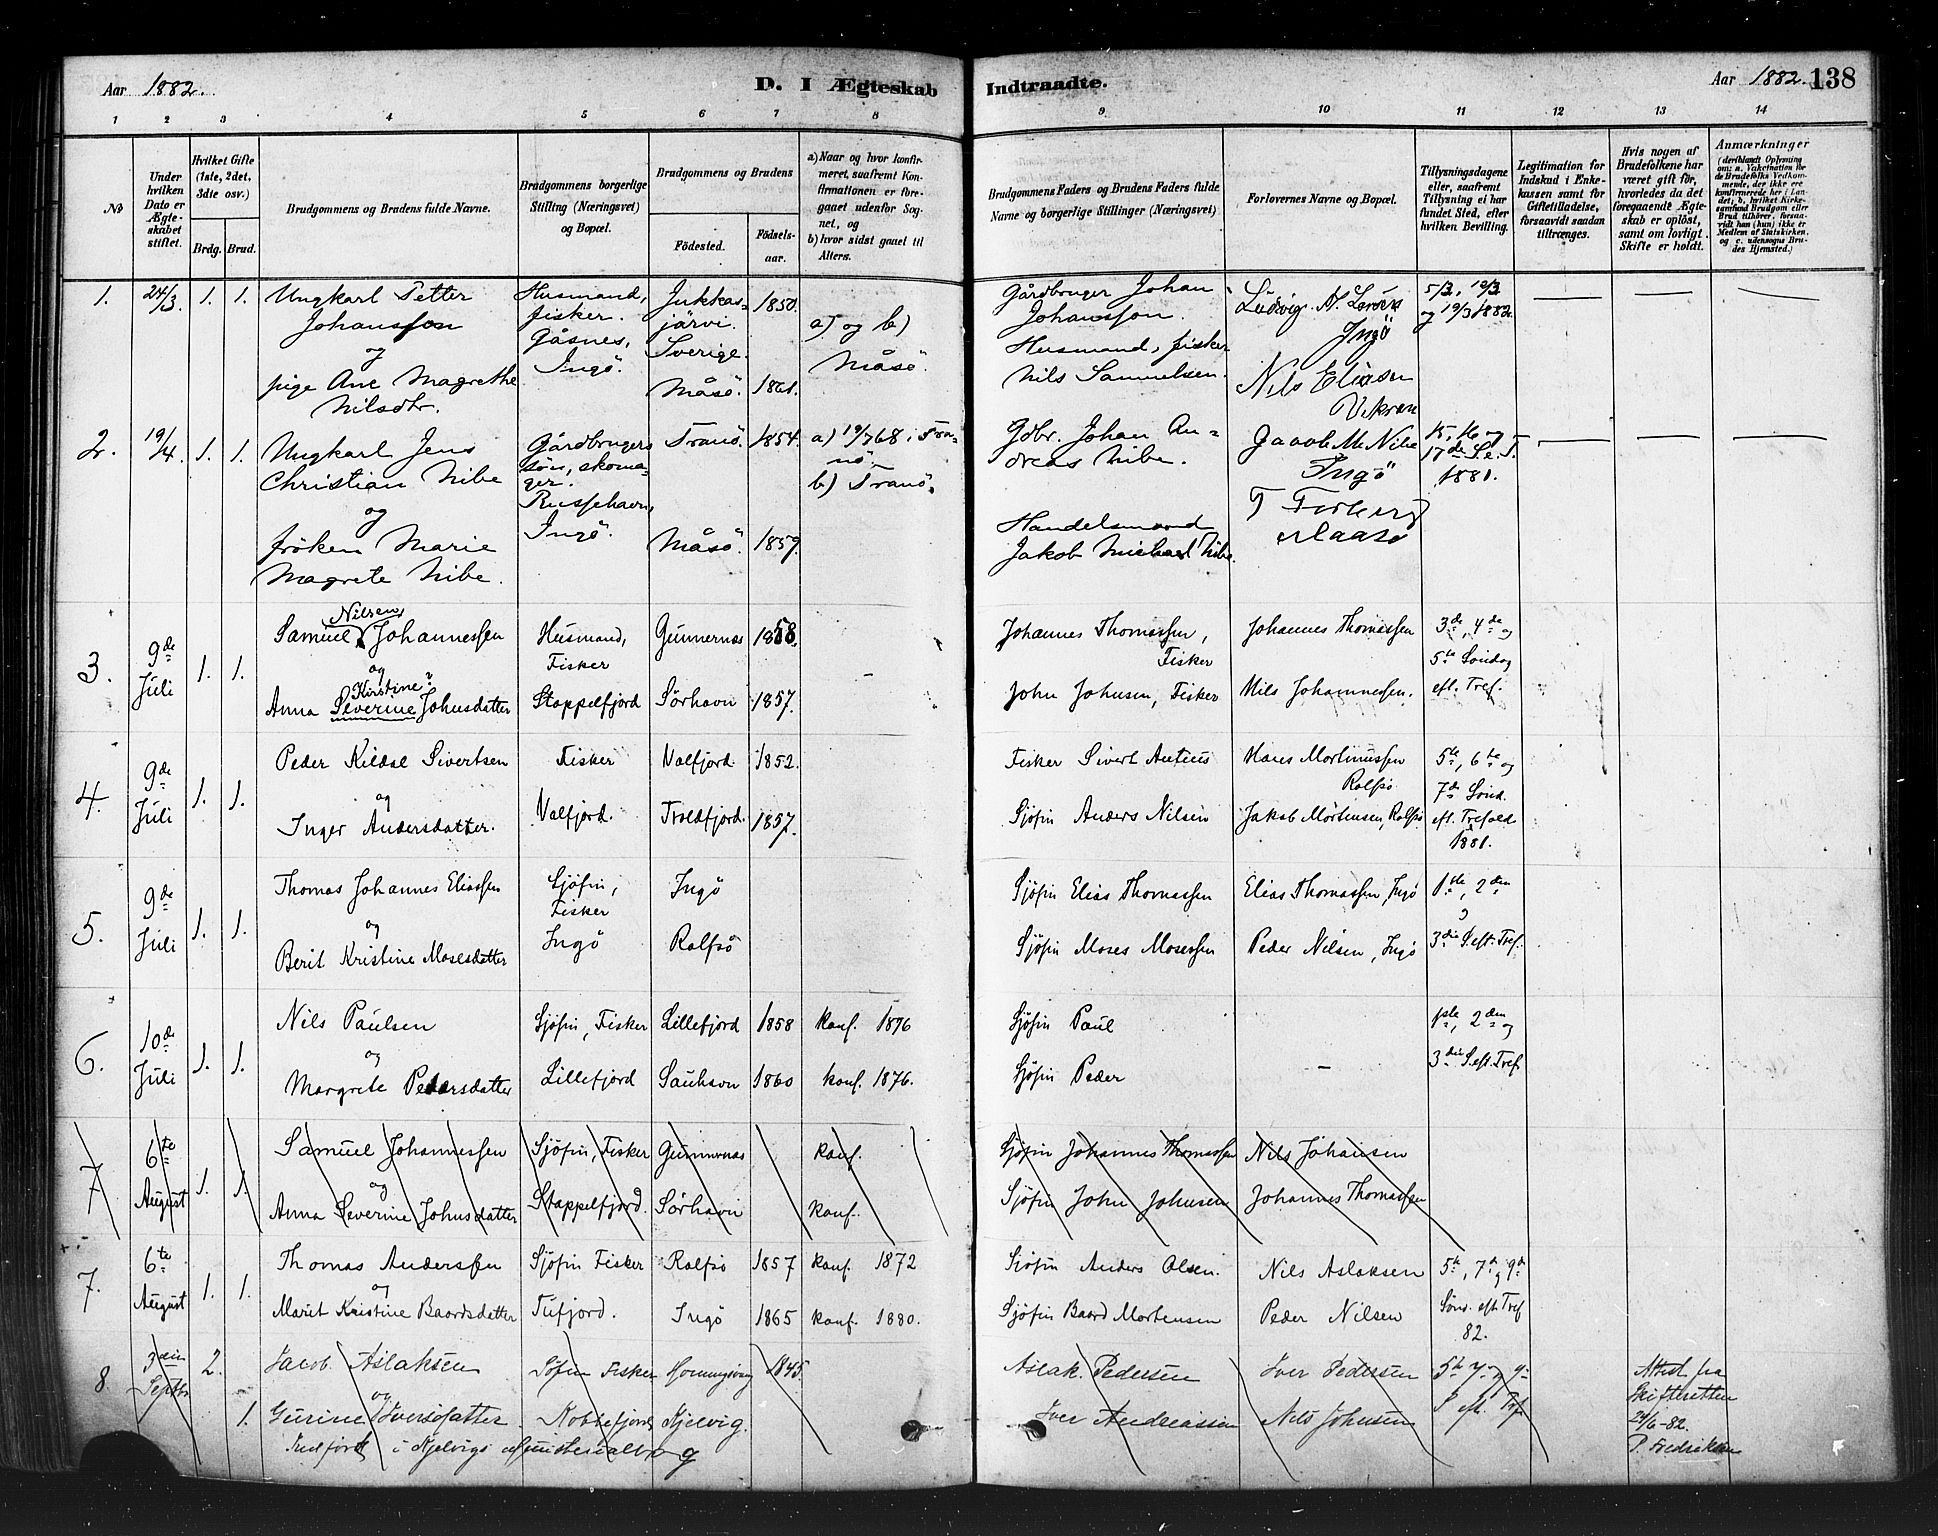 Aar 1882.
D. I Ægteskab Indtraadte.
Aar 1882. 138
1 2 3 4 5 6 7 8 9 10 11 12 13 14
No
Under hvilken Dato er Ægteskabet stiftet.
Hvilket Gifte (1ste, 2det, 3die osv.)
Brdg. Brud.
Brudgommens og Brudens fulde Navne.
Brudgommens borgerlige Stilling (Næringsvei) og Bopæl.
Brudgommens og Brudens
Födested. Födsels-aar.
a) Naar og hvor konfirmeret, saafremt Konfirmationen er foregaaet udenfor Sognet, og
b) hvor sidst gaaet til Alters.
Brudgommens Faders og Brudens Faders fulde Navne og borgerlige Stillinger (Næringsvei)
Forlovernes Navne og Bopæl.
Tillysningsdagene eller, saafremt Tillysning ei har fundet Sted, efter hvilken Bevilling.
Legitimation for Indskud i Enkekassen samt for Giftetilladelse, forsaavidt saadan tiltrænges.
Hvis nogen af Brudefolkene har været gift för, hvorledes da det foregaaende Ægteskab er oplöst, samt om lovligt Skifte er holdt.
Anmærkninger
(deriblandt Oplysning om: a. Vakcination for de Brudefolks Vedkommende, der ikke ere konfirmerede her i Landet; b. hvilket Kirkesamfund Brudgom eller Brud tilhörer, forsaavidt han (hun) ikke er Medlem af Statskirken, og c. udensogns Brudes Hjemsted.)
1. 24/3. 1. 1. Ungkarl Petter Johansson
og
pige Ane Magrethe Nilsdtr.
Husmand, fisker. Gåsnes, Ingö.
Jukkasjärvi. Sverige. 1850.
Måsö. 1861.
a) og b) Måsö.
Gårdbruger Johan Johansson.
Husmand, fisker Nils Samuelsen.
Ludvig Ingö
Nils Eliasen
5/3, 12/3 og 19/3 1882.
2. 19/4. 1. 1. Ungkarl Jens Christian Nibe
og
fröken Marie Magrete Nibe.
Gårdbrugers sön, skomager. Russehavn, Ingö.
Tranö. 1854.
Måsö. 1859.
a) 19/7 68 i Tranö.
b) Tranö.
Gdbr. Johan Andreas Nibe.
Handelsmand Jakob Michael Nibe
Jacob M. Nibe Ingö
Maasö
15, 16 og 17de S. e. T. 1881.
3. 9de Juli 1. 1. Samuel Nilsen Johannessen
og
Anna Kirstine? Severine Johnsdatter
Husmand, Fisker
Stappelfjord
Gunnernæs 1858.
Sörhavn 1857.
Johannes Thomassen, Fisker
John Johnsen, Fisker
Johannes Thomassen
Nils Johannessen.
3de, 4de og 5te Söndag eft. Tref.
4. 9de Juli 1. 1. Peder Kildal Sivertsen
og
Inger Andersdatter.
Fisker
Valfjord.
Valfjord. 1852.
Troldfjord. 1857.
Fisker Sivert Antius
Sjöfin Anders Nilsen
Hans Mortinussen Rolfsö
Jakob Mortensen, Rolfsö
5te, 6te og 7de Sönd. eft. Trefold 1881.
5. 9de Juli 1. 1. Thomas Johannes Eliassen
og
Berit Kristine Mosesdatter
Sjöfin, Fisker
Ingö
Ingö
Rolfsö
Sjöfin Elias Thomassen
Sjöfin Moses Mosessen
Elias Thomassen, Ingö
Peder Nilsen, Ingö
1ste, 2den og 3die S. eft. Tref.
6. 10de Juli 1. 1. Nils Paulsen
og
Margrete Pedersdatter
Sjöfin, Fisker
Lillefjord
Lillefjord 1858 konf. 1876
Sauhavn 1860 konf. 1876.
Sjöfin Paul
Sjöfin Peder
1ste, 2den og 3die S. eft. Tref
7 6te August 1. 1. Samuel Johannessen
og
Anna Severine Johnsdatter
Sjöfin, Fisker
Stappelfjord.
Gunnernæs konf.
Sörhavn konf.
Sjöfin Johannes Thomassen
Sjöfin John Johnsen
Nils Johansen
Johannes Thomassen
7. 6te August 1. 1. Thomas Anderssen
og
Marit Kristine Baardsdatter
Sjöfin Fisker
Tufjord.
Rolfsö 1857 konf. 1872
Ingö 1865 konf. 1880.
Sjöfin Anders Olsen.
Sjöfin Baard Mortensen
Nils Aslaksen
Peder Nilsen
5te, 7de og 9de Sönd. eft. Tref 82.
8 3die Septbr 2. 1. Jacob Aslaksen
og
Gurine Iversdatter
Söfin Fisker
Kobbefjord
Honningsvåg 1845.
Kjelvig.
Indført i Kjelvigs ministerialbog
Aslak Pedersen
Iver Andreassen
Iver Pedersen
Nils Johnsen
S. eft. Tref
Attest fra Skifteretten 24/6-82. P. Fredriksen